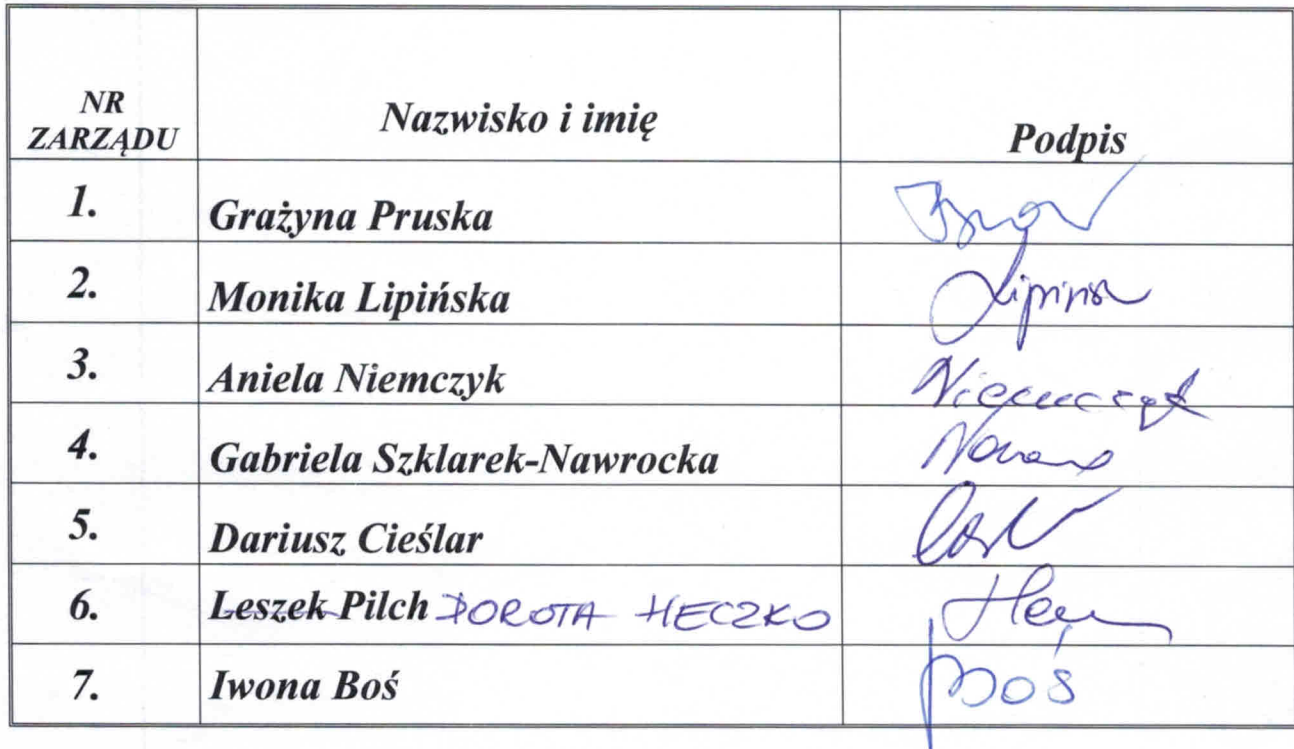 NR ZARZĄDU Nazwisko i imię Podpis
1. Grażyna Pruska
2. Monika Lipińska
3. Aniela Niemczyk Niemczyk
4. Gabriela Szklarek-Nawrocka
5. Dariusz Cieślar
6. Leszek Pilch DOROTA HECZKO
7. Iwona Boś Boś